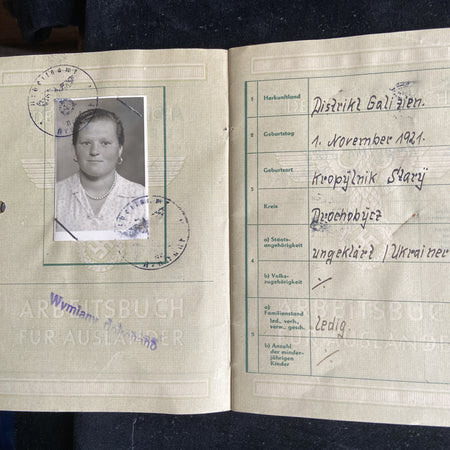 Arbeitsamt
Wymianę dokonano
ARBEITSBUCH
FÜR AUSLÄNDER
1 Herkunftland
Distrikt Galizien.
2 Geburtstag
1. November 1921.
Geburtsort
Kropÿlnik Starÿ
3
Kreis
Drohobÿcz
a) Staats-
angehörigkeit
ungeklärt / Ukrainer
4
b) Volks-
zugehörigkeit
a)
Familienstand
led., verh.,
verw., gesch.
ledig.
5
b) Anzahl
der minder-
jährigen
Kinder
ARBEITSBUCH
FÜR AUSLÄNDER